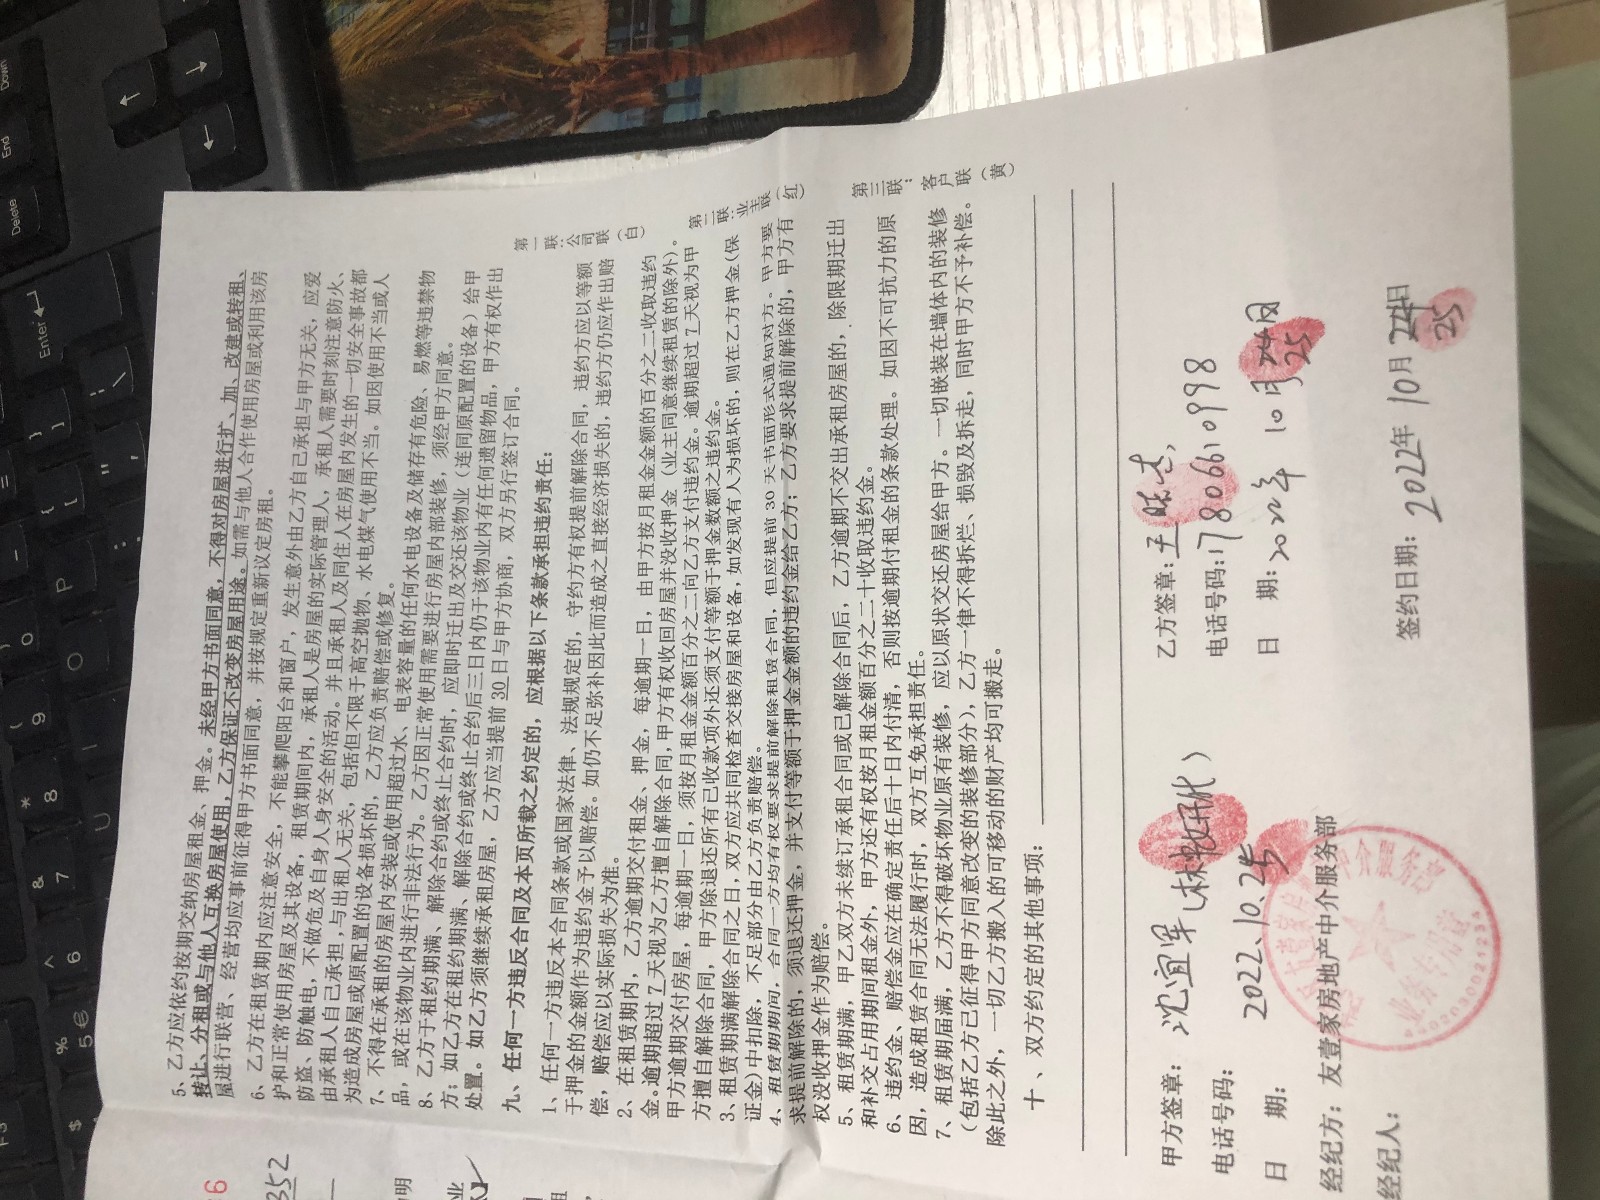 5、乙方应依约按期交纳房屋租金、押金。未经甲方书面同意，不得对房屋进行扩、加、改建或转租、
转让、分租或与他人互换房屋使用，乙方保证不改变房屋用途。如需与他人合作使用房屋或利用该房
屋进行联营、经营均应事前征得甲方书面同意，并按规定重新议定房租。
6、乙方在租赁期内应注意安全，不能攀爬阳台和窗户，发生意外由乙方自己承担与甲方无关，应爱
护和正常使用房屋及其设备，租赁期间内，承租人是房屋的实际管理人，承租人需要时刻注意防火、
防盗、防触电，不做危及自身人身安全的活动。并且承租人及同住人在房屋内发生的一切安全事故都
由承租人自己承担，与出租人无关，包括但不限于高空抛物、水电煤气使用不当。如因使用不当或人
为造成房屋或原配置的设备损坏的，乙方应负责赔偿或修复。
7、不得在承租的房屋内安装或使用超过水、电表容量的任何水电设备及储存有危险、易燃等违禁物
品，或在该物业内进行非法行为。乙方因正常使用需要进行房屋内部装修，须经甲方同意。
8、乙方于租约期满、解除合约或终止合约时，应即时迁出及交还该物业（连同原配置的设备）给甲
方；如乙方在租约期满、解除合约或终止合约后三日内仍于该物业内有任何遗留物品，甲方有权作出
处置。如乙方须继续承租房屋，乙方应当提前 30 日与甲方协商，双方另行签订合同。
九、任何一方违反合同及本页所载之约定的，应根据以下条款承担违约责任：
1、任何一方违反本合同条款或国家法律、法规规定的，守约方有权提前解除合同，违约方应以等额
于押金的金额作为违约金予以赔偿。如仍不足弥补因此而造成之直接经济损失的，违约方仍应作出赔
偿，赔偿应以实际损失为准。
2、在租赁期内，乙方逾期交付租金、押金，每逾期一日，由甲方按月租金金额的百分之二收取违约
金。逾期超过 7 天视为乙方擅自解除合同，甲方有权收回房屋并没收押金（业主同意继续租赁的除外）。
甲方逾期交付房屋，每逾期一日，须按月租金金额百分之二向乙方支付违约金。逾期超过 7 天视为甲
方擅自解除合同，甲方除退还所有已收款项外还须支付等额于押金数额之违约金。
3、租赁期满解除合同之日，双方应共同检查交接房屋和设备，如发现有人为损坏的，则在乙方押金(保
证金)中扣除，不足部分由乙方负责赔偿。
4、租赁期期间，合同一方均有权要求提前解除租赁合同，但应提前 30 天书面形式通知对方。甲方要
求提前解除的，须退还押金，并支付等额于押金金额的违约金给乙方；乙方要求提前解除的，甲方有
权没收押金作为赔偿。
5、租赁期满，甲乙双方未续订承租合同或已解除合同后，乙方逾期不交出承租房屋的，除限期迁出
和补交占用期间租金外，甲方还有权按月租金额百分之二十收取违约金。
6、违约金、赔偿金应在确定责任后十日内付清，否则按逾期付租金的条款处理。如因不可抗力的原
因，造成租赁合同无法履行时，双方互免承担责任。
7、租赁期届满，乙方不得破坏物业原有装修，应以原状交还房屋给甲方。一切嵌装在墙体内的装修
（包括乙方已征得甲方同意改变的装修部分），乙方一律不得拆烂、损毁及拆走，同时甲方不予补偿。
除此之外，一切乙方搬入的可移动的财产均可搬走。
十、双方约定的其他事项：
第一联：公司联（白）
第二联：业主联（红）
第三联：客户联（黄）
甲方签章：沈宜军（林
电话号码：
日 期：2022.10.25
乙方签章：王
电话号码：17806610998
日 期：2022年 10月 24日
25
经纪方：友壹家房地产中介服务部
经纪人：
签约日期：2022年 10月 24日
25
中介服务部
业务专用章
352